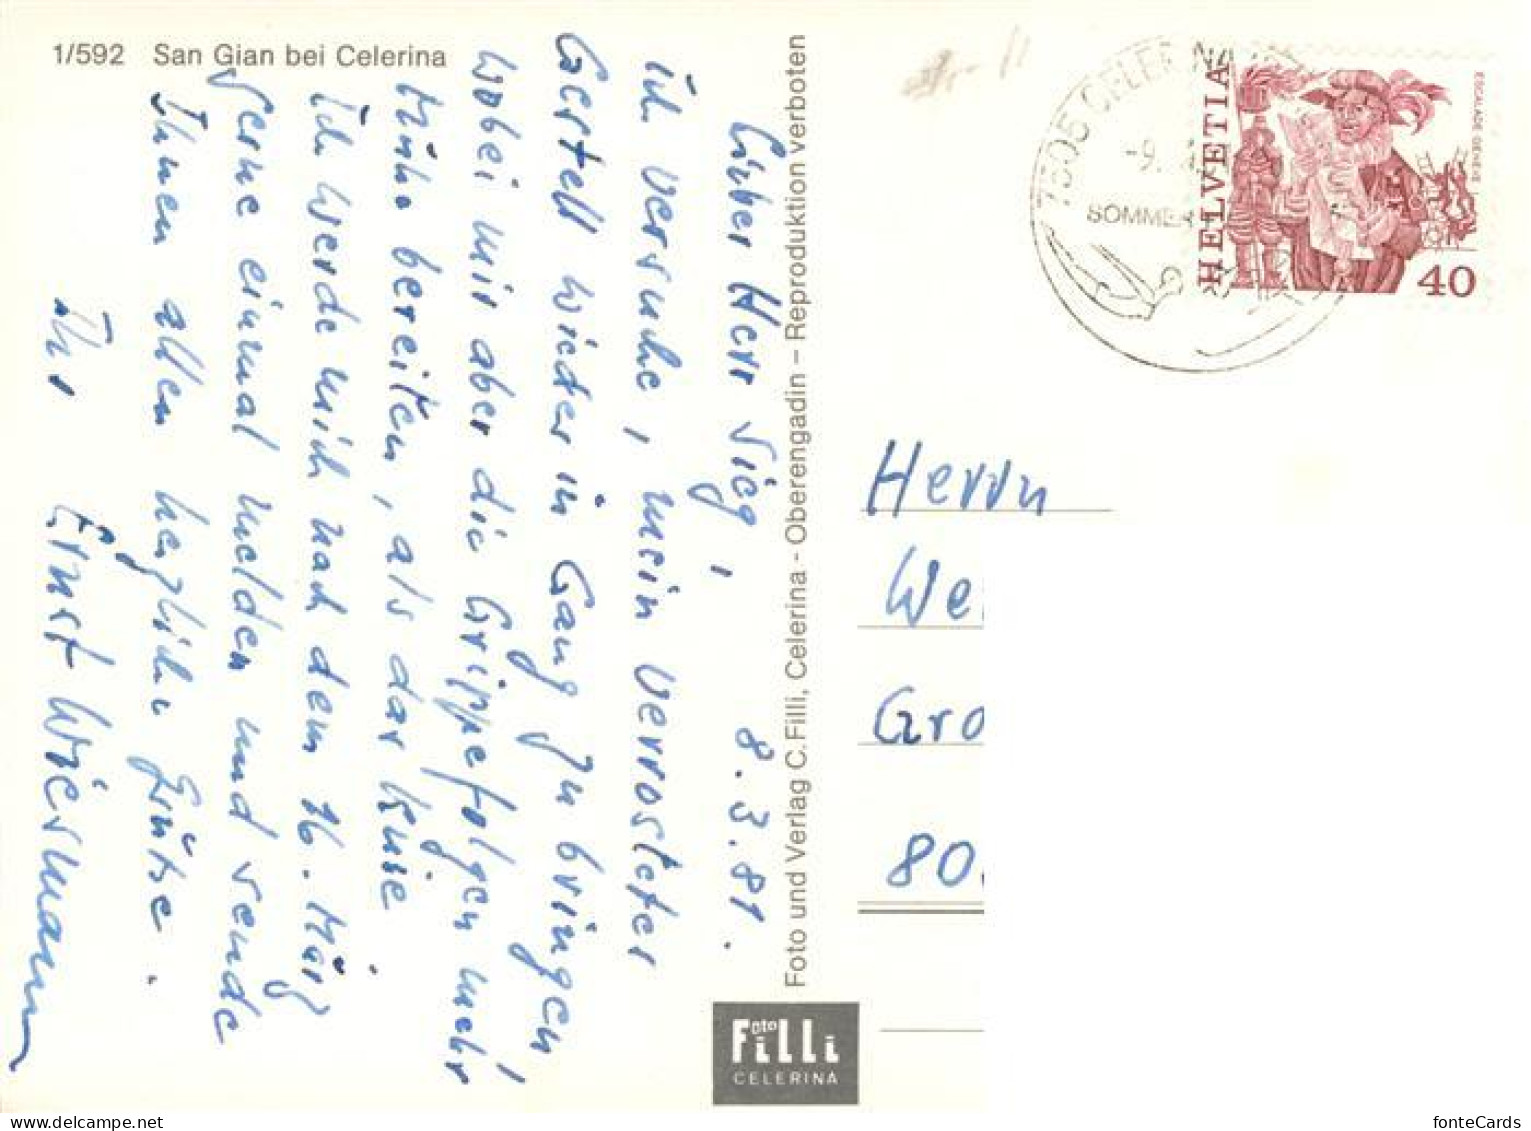 1/592 San Gian bei Celerina
Lieber Herr Sieg, 8.3.81.
ich versuche, mein verrostetes
Gestell wieder in Gang zu bringen,
wobei mir aber die Grippefolgen mehr
Mühe bereiten, als das Knie.
Ich werde mich nach dem 16. März
gerne einmal melden und sende
Ihnen allen herzliche Grüsse.
Ihr Ernst Wiesmann
Foto und Verlag C. Filli, Celerina - Oberengadin – Reproduktion verboten
Foto
Filli
CELERINA
7505 CELERINA
-9.
SOMMER
HELVETIA
ESCALADE GENÈVE
40
Herrn
We
Gro
80
fonteCards